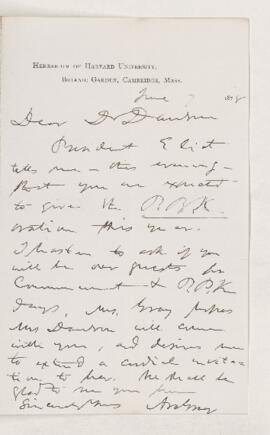 HERBARIUM OF HARVARD UNIVERSITY,
BOTANIC GARDEN, CAMBRIDGE, MASS.
June 7 1878
Dear Dr Dawson
President Eliot
tells me - this evening -
that you are expected
to give the P.B.K.
oration this year.
I hasten to ask if you
will be our guests for
Commencement & P.B.K
days, Mrs. Gray hopes
Mrs Dawson will come
with you, and desires me
to extend a cordial invita-
tion to her. We shall be
glad to see you
Sincerely Yours Asa Gray